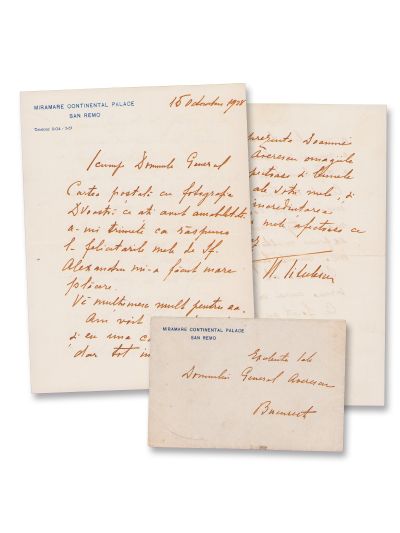 MIRAMARE CONTINENTAL PALACE
SAN REMO
15 Octombrie 1928
Scumpe Domnule General
Cartea poștală cu fotografia
Dvoastră ce ați avut amabilitatea
a-mi trimete ca răspuns
la felicitările mele de Sf.
Alexandru mi-a făcut mare
plăcere.
Vă mulțumesc mult pentru ea.
Am
și eu una
dar tot
prezenta Doamnei
Averescu omagiile
și
ale soției mele, și
încredințarea
mele afectuoase
N. Titulescu
MIRAMARE CONTINENTAL PALACE
SAN REMO
Excelenței Sale
Domnului General Averescu
București